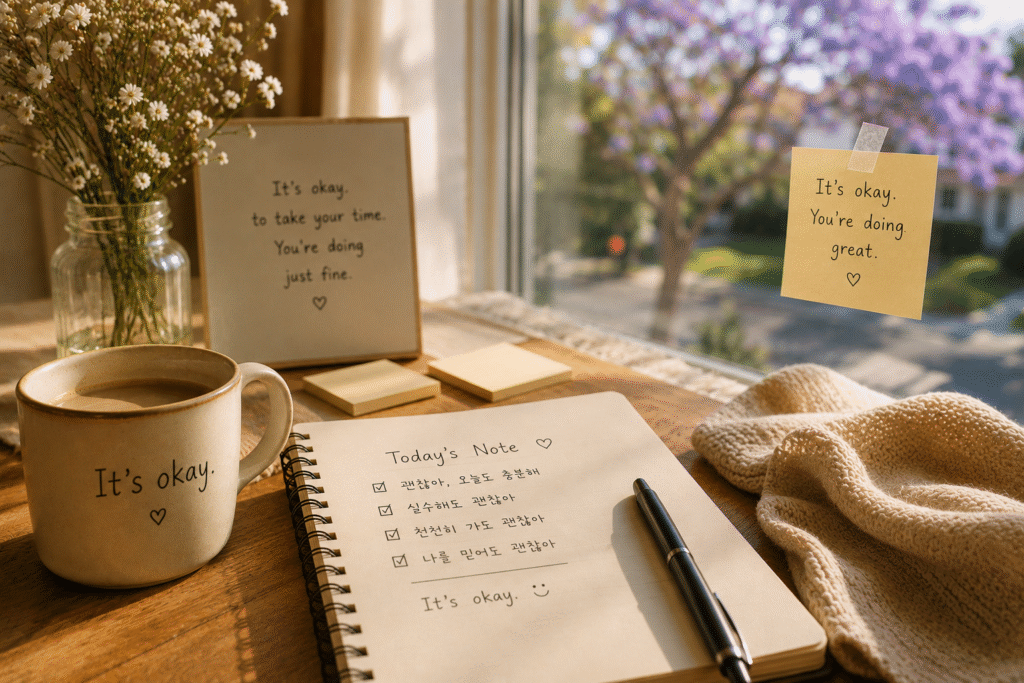 It's okay.
to take your time.
You're doing
just fine.
♡
It's okay.
You're doing
great.
♡
It's okay.
♡
Today's Note ♡
☑ 괜찮아, 오늘도 충분해
☑ 실수해도 괜찮아
☑ 천천히 가도 괜찮아
☑ 나를 믿어도 괜찮아
It's okay. :)